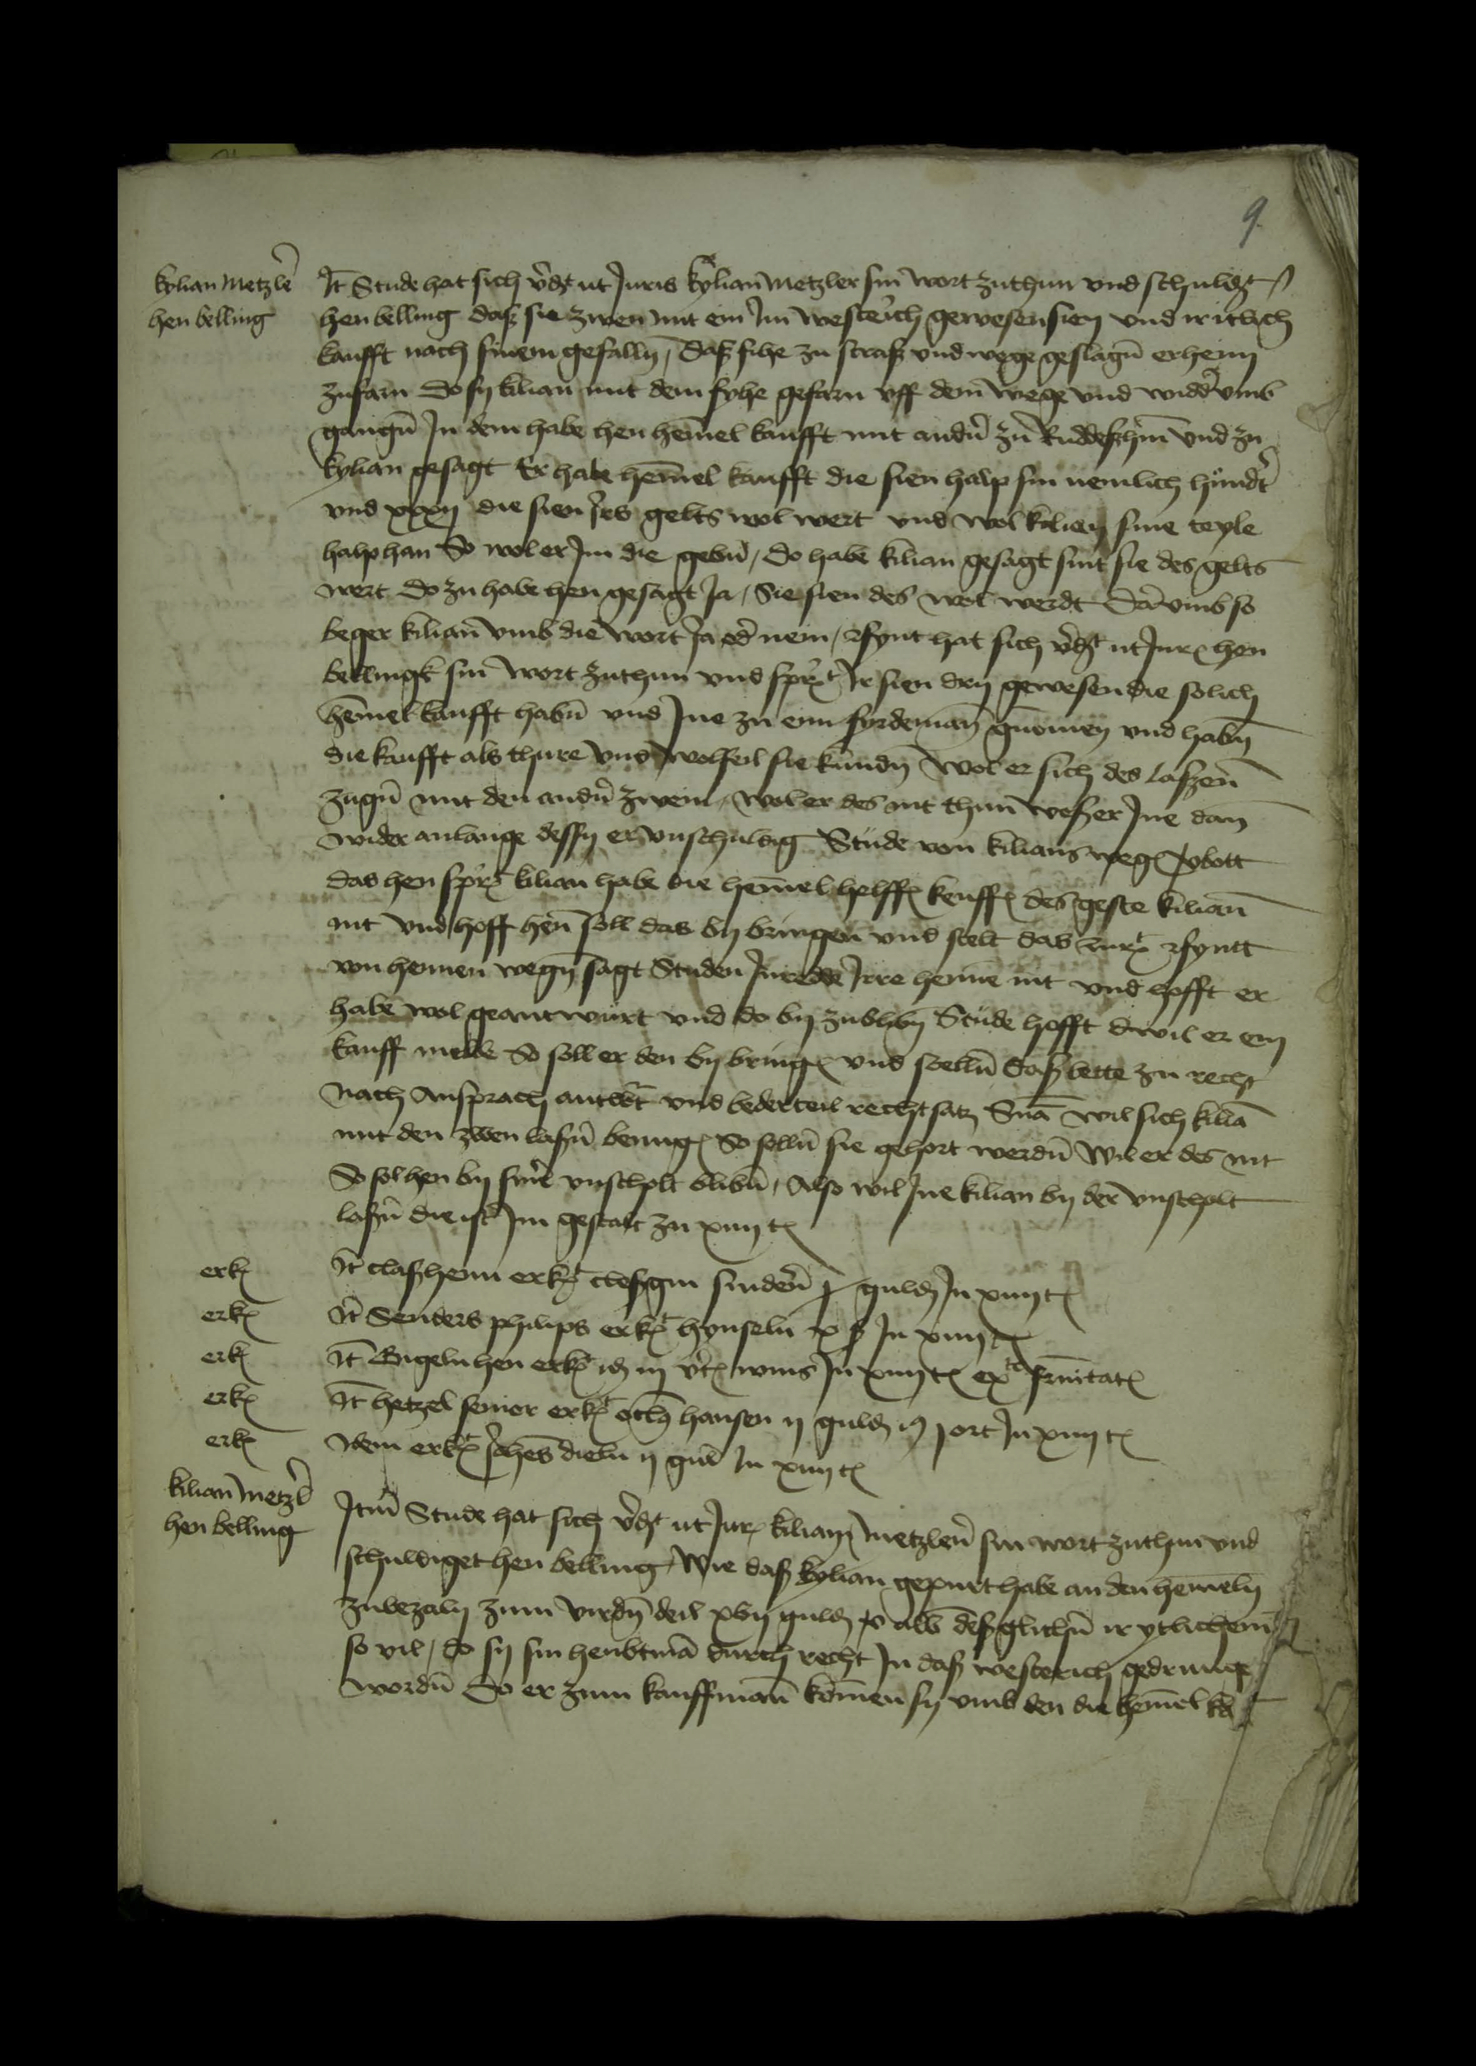 9.
kylian Metzler
hen belling
It Stude hat sich v̓dꝫt ut Juris kylian Metzler sin wort zuthun und schuldꝫt
hen belling daß sie zwen mit ein im westerich gewesen sien und ir itlich
kaufft nach sinem gefalln, daß fihe zu straß und wege geslagen er henn
zufarn do sy kilian mit dem fyhe gefarn uff dem wege und widder umb
gangen In dem habe hen hemel kaufft mit andern zu Ruddeßheim und zu
kylian gesagt Er habe hemel kaufft die sien halp sin nemlich hundert
und xxxij die sien irs gelts wol wert und wol kilien sine teyle
halp han So wol er Jm die geben, do habe kilian gesagt sint sie des gelts
wert do zu habe hen gesagt Ja, Sie sien des wol werdt Darumb so
beger kilian umb die wort Ja oder nein, Rsynt hat sich v̓dꝫt ut Jur hen
bellingk sin wort zuthun und spricht Ir sien dry gewesen die solich
hemel kaufft haben und Jne zu eim fyrdeman gnomen und haben
die kaufft als thure und wolfeil sie kunden Wol er sich des laßen
zugen mit den andern zwein, wol er des nit thun weß er Jne dan
wider anlange dessen er unschuldig Stude von kilians wegen verbott
das hen spricht kilian habe die hemel helffen keuffen des geste kilian
nit und hoff hen soll das by bringen und stelt das zurt Rsyntt
von hennen wegen sagt Studen Jnredde Jrre henne nit und hofft er
habe wol geantwurt und do by zubliben Stude hofft diwil er ein
kauff melde So soll er den by bringen und stellen daß bette zu recht
Nach Ansprach antwort und beder teil rechtsatz Sna wil sich kilian
mit den zwen laßen benugen So sollen sie gehort werden Wil er des nit
So sol hen by siner unscholt bliben, Also wil Jne kilian by der unscholt
laßen die ist Jm gestalt zu xiiij t
erk It claßhenn erkt cleßgin sindern j gulden Jn xiiij t
erk It Senders philips erkt hynseln x ß Jn xiiij t
erk It Bigeln hen erkt iij wins Jn xiiij t
erk It hetzel senior erkt hansen ij gulden j ort Jn xiiij t
erk Idem erkt dieln ij guld Jn xiiij t
kilian Metzler
hen belling
Item Stude hat sich v̓dꝫt ut Jur kilian Metzlern sin wort zuthun und
schuldiget hen belling, Wie daß kylian gepurt habe an den hemeln
zubezaln zum virden deil xvij gulden alb deßglichen ir ytlichem
so vil, do sy sin heubtman durch recht Jn daß westerich gedrunge
worden Do er zum kauffman komen sy umb den die hemel